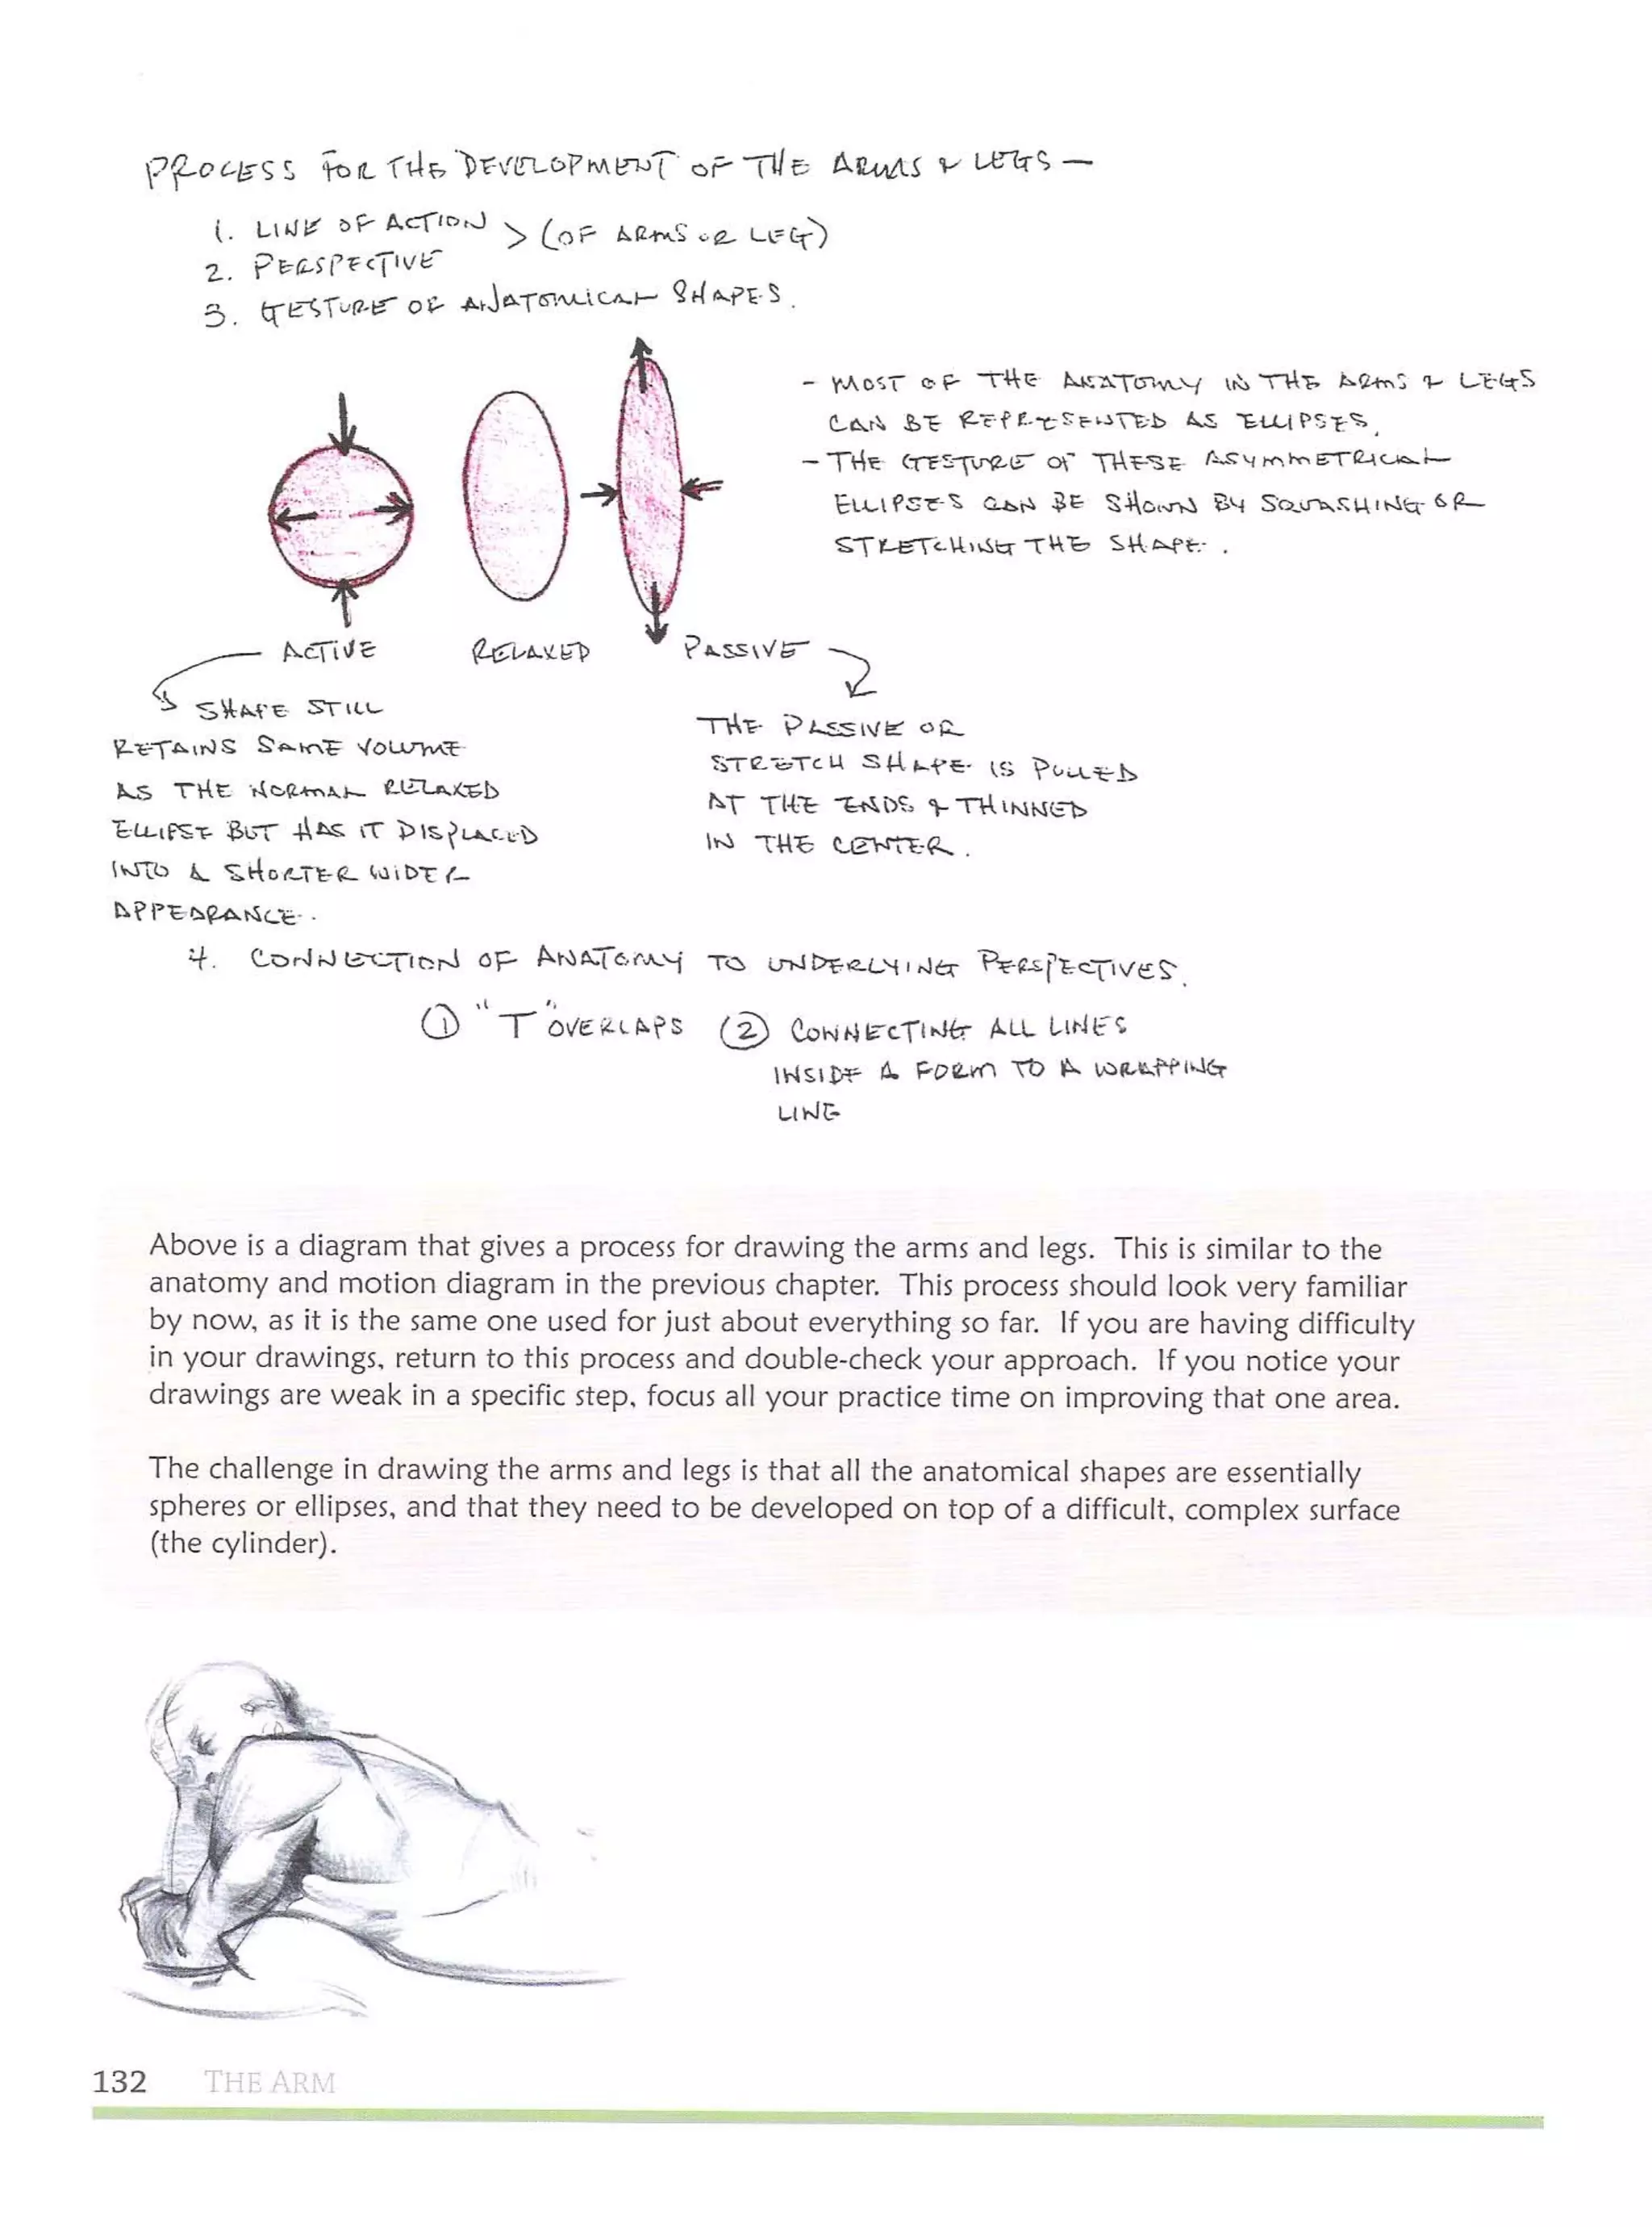 PROCESS FOR THE DEVELOPMENT OF THE ARMS & LEGS —
1. LINE OF ACTION > (OF ARMS OR LEG)
2. PERSPECTIVE
3. GESTURE OF ANATOMICAL SHAPES.
- MOST OF THE ANATOMY IN THE ARMS & LEGS
CAN BE REPRESENTED AS ELLIPSES.
- THE GESTURE OF THESE ASYMMETRICAL
ELLIPSES CAN BE SHOWN BY SQUASHING OR
STRETCHING THE SHAPE.
ACTIVE
RELAXED
PASSIVE
SHAPE STILL
RETAINS SAME VOLUME
AS THE NORMAL RELAXED
ELLIPSE BUT HAS IT DISPLACED
INTO A SHORTER WIDER
APPEARANCE.
THE PASSIVE OR
STRETCH SHAPE IS PULLED
AT THE ENDS & THINNED
IN THE CENTER.
4. CONNECTION OF ANATOMY TO UNDERLYING PERSPECTIVES.
① "T" OVERLAPS ② CONNECTING ALL LINES
INSIDE A FORM TO A WRAPPING
LINE
Above is a diagram that gives a process for drawing the arms and legs. This is similar to the
anatomy and motion diagram in the previous chapter. This process should look very familiar
by now, as it is the same one used for just about everything so far. If you are having difficulty
in your drawings, return to this process and double-check your approach. If you notice your
drawings are weak in a specific step, focus all your practice time on improving that one area.
The challenge in drawing the arms and legs is that all the anatomical shapes are essentially
spheres or ellipses, and that they need to be developed on top of a difficult, complex surface
(the cylinder).
132 THE ARM